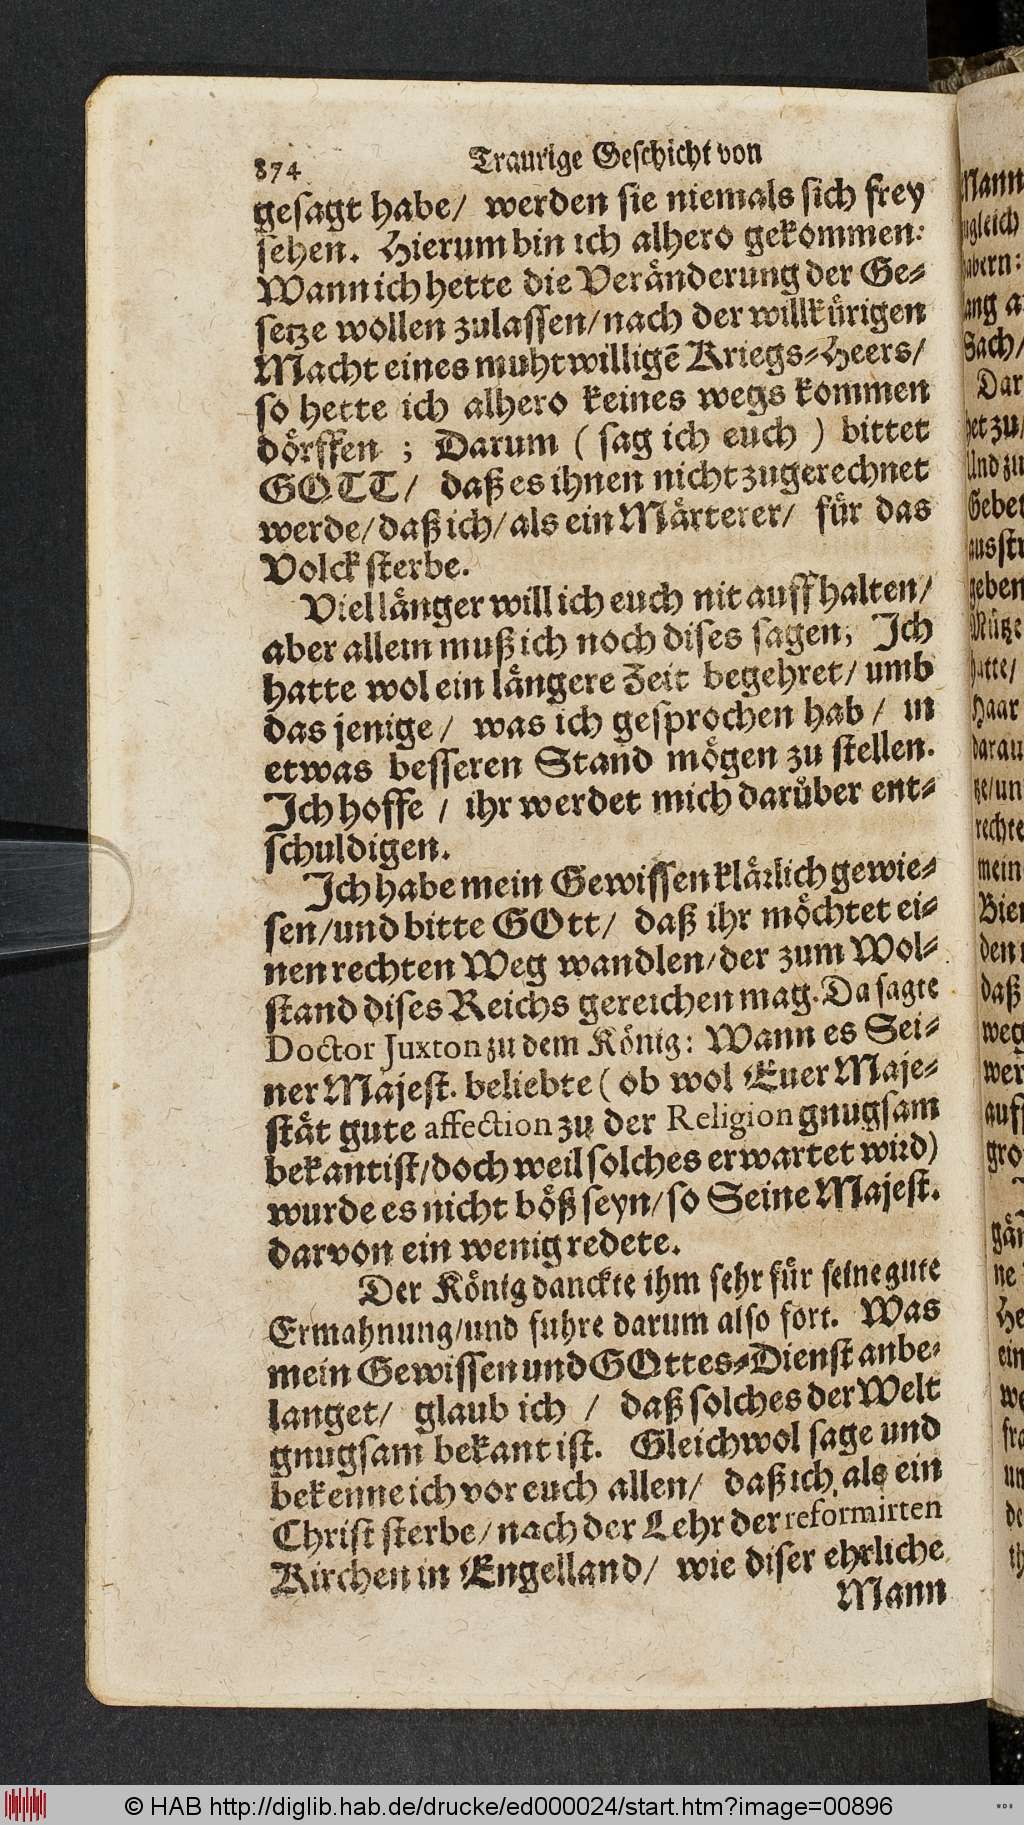 874 Traurige Geschicht von
gesagt habe/ werden sie niemals sich frey
sehen. Hierum bin ich alhero gekommen:
Wann ich hette die Veränderung der Ge-
setze wollen zulassen/nach der willkürigen
Macht eines muhtwilligẽ Kriegs-Heers/
so hette ich alhero keines wegs kommen
dörffen ; Darum ( sag ich euch ) bittet
GOTT/ daß es ihnen nicht zugerechnet
werde/daß ich/als ein Märterer/ für das
Volck sterbe.
Viel länger will ich euch nit auffhalten/
aber allein muß ich noch dises sagen, Ich
hatte wol ein längere Zeit begehret/ umb
das jenige/ was ich gesprochen hab/ in
etwas besseren Stand mögen zu stellen.
Ich hoffe / ihr werdet mich darüber ent-
schuldigen.
Ich habe mein Gewissen klärlich gewie-
sen/und bitte GOtt/ daß ihr möchtet ei-
nen rechten Weg wandlen/der zum Wol-
stand dises Reichs gereichen mag. Da sagte
Doctor Juxton zu dem König: Wann es Sei-
ner Majest. beliebte ( ob wol Euer Maje-
stät gute affection zu der Religion gnugsam
bekant ist/doch weil solches erwartet wird)
wurde es nicht böß seyn/so Seine Majest.
darvon ein wenig redete.
Der König danckte ihm sehr für seine gute
Ermahnung/und fuhre darum also fort. Was
mein Gewissen und GOttes-Dienst anbe-
langet/ glaub ich / daß solches der Welt
gnugsam bekant ist. Gleichwol sage und
bekenne ich vor euch allen/ daß ich, als ein
Christ sterbe/nach der Lehr der reformirten
Kirchen in Engelland/ wie diser ehrliche
Mann
© HAB http://diglib.hab.de/drucke/ed000024/start.htm?image=00896